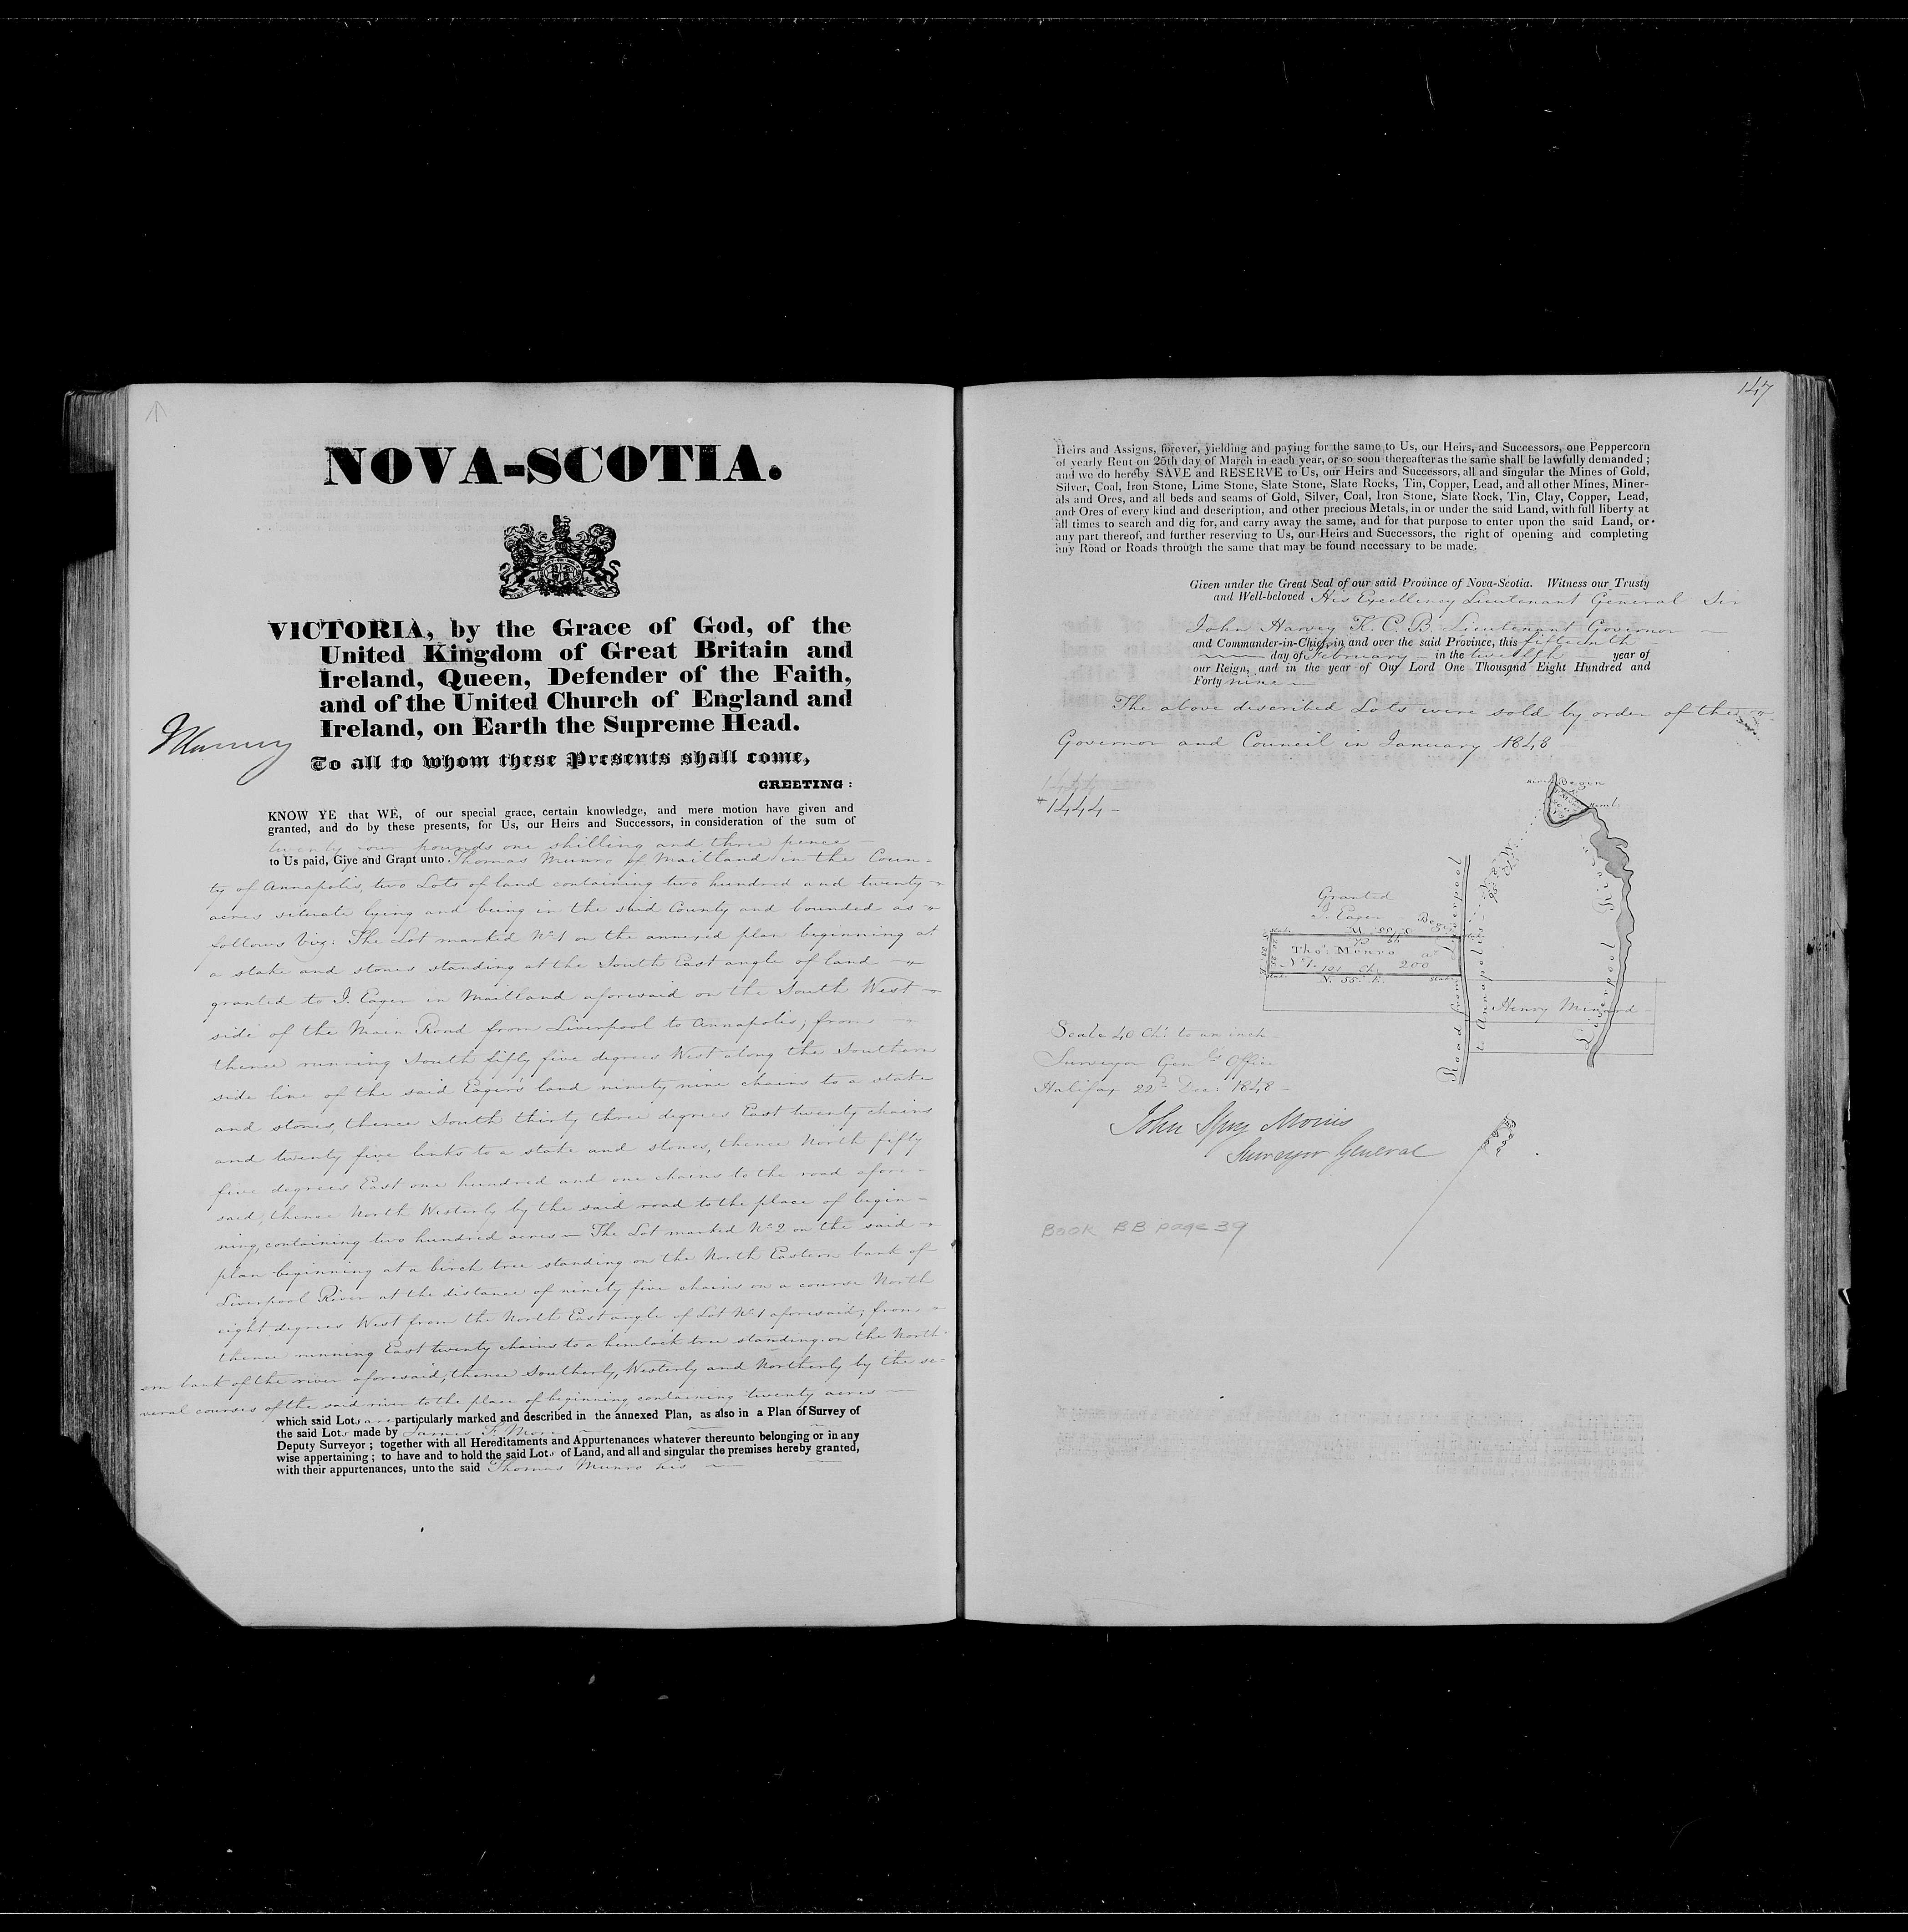 NOVA-SCOTIA.
VICTORIA, by the Grace of God, of the
United Kingdom of Great Britain and
Ireland, Queen, Defender of the Faith,
and of the United Church of England and
Ireland, on Earth the Supreme Head.
To all to whom these Presents shall come,
GREETING :
KNOW YE that WE, of our special grace, certain knowledge, and mere motion have given and
granted, and do by these presents, for Us, our Heirs and Successors, in consideration of the sum of
twenty four pounds one shilling and three pence
to Us paid, Give and Grant unto Thomas Munro of Maitland in the Coun-
ty of Annapolis, two Lots of land containing two hundred and twenty
acres situate lying and being in the said County and bounded as
follows Viz: The Lot marked No. 1 on the annexed plan beginning at
a stake and stones standing at the South East angle of land
granted to J. Eager in Maitland aforesaid on the South West
side of the Main Road from Liverpool to Annapolis; from
thence running South fifty five degrees West along the Southern
side line of the said Eager's land ninety nine chains to a stake
and stones, thence South thirty three degrees East twenty chains
and twenty five links to a stake and stones, thence North fifty
five degrees East one hundred and one chains to the road afore-
said, thence North Westerly by the said road to the place of begin-
ning, containing two hundred acres – The Lot marked No. 2 on the said
plan beginning at a birch tree standing on the North Eastern bank of
Liverpool River at the distance of ninety five chains on a course North
eight degrees West from the North East angle of Lot No. 1 aforesaid; from
thence running East twenty chains to a hemlock tree standing on the North-
ern bank of the river aforesaid, thence Southerly, Westerly and Northerly by the se-
veral courses of the said river to the place of beginning containing twenty acres
which said Lots are particularly marked and described in the annexed Plan, as also in a Plan of Survey of
the said Lots made by James F. More
Deputy Surveyor ; together with all Hereditaments and Appurtenances whatever thereunto belonging or in any
wise appertaining ; to have and to hold the said Lots of Land, and all and singular the premises hereby granted,
with their appurtenances, unto the said Thomas Munro his
147
Heirs and Assigns, forever, yielding and paying for the same to Us, our Heirs, and Successors, one Peppercorn
of yearly Rent on 25th day of March in each year, or so soon thereafter as the same shall be lawfully demanded ;
and we do hereby SAVE and RESERVE to Us, our Heirs and Successors, all and singular the Mines of Gold,
Silver, Coal, Iron Stone, Lime Stone, Slate Stone, Slate Rocks, Tin, Copper, Lead, and all other Mines, Miner-
als and Ores, and all beds and seams of Gold, Silver, Coal, Iron Stone, Slate Rock, Tin, Clay, Copper, Lead,
and Ores of every kind and description, and other precious Metals, in or under the said Land, with full liberty at
all times to search and dig for, and carry away the same, and for that purpose to enter upon the said Land, or
any part thereof, and further reserving to Us, our Heirs and Successors, the right of opening and completing
any Road or Roads through the same that may be found necessary to be made.
Given under the Great Seal of our said Province of Nova-Scotia. Witness our Trusty
and Well-beloved His Excellency Lieutenant General Sir
John Harvey K. C. B. Lieutenant Governor
and Commander-in-Chief, in and over the said Province, this fifteenth
day of February in the twelfth year of
our Reign, and in the year of Our Lord One Thousand Eight Hundred and
Forty nine
The above described Lots were sold by order of the
Governor and Council in January 1848
1444
#1444
Begin
Hemk
Granted
J. Eager
Begin
Thos. Munro
No. 1
101 Chs
200
N. 55° E.
Road from Liverpool
to Annapolis
Liverpool River
Henry Minard
Scale 40 Chs to an inch
Surveyor Genls Office
Halifax 22d Decr 1848
John Spry Morris
Surveyor General
Book BB page 39